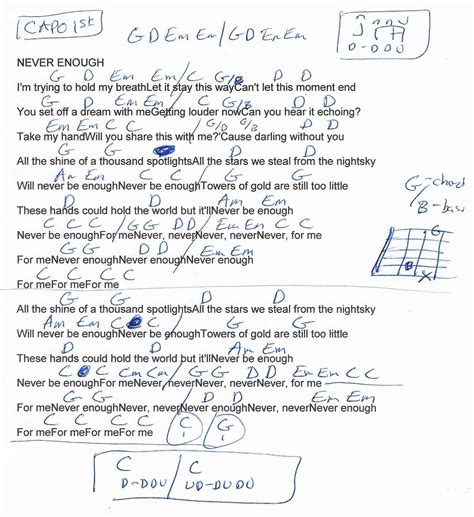 CAPO 1st G D Em Em / G D Em Em D-DOU
NEVER ENOUGH
G D Em Em / C G/B D D
I'm trying to hold my breathLet it stay this wayCan't let this moment end
G D Em Em / C C G/B D D
You set off a dream with meGetting louder nowCan you hear it echoing?
Em Em C C / G/B G/B D D
Take my handWill you share this with me?'Cause darling without you
G G D D
All the shine of a thousand spotlightsAll the stars we steal from the nightsky
Am Em C C G G
Will never be enoughNever be enoughTowers of gold are still too little
D D Am Em
These hands could hold the world but it'llNever be enough
C C C / G G D D / Em Em C C
Never be enoughFor meNever, neverNever, neverNever, for me
G G D D Em Em
For meNever enoughNever enoughNever enough
C C C C
For meFor meFor me
G-chord
B-bass
G
B
X
G G D D
All the shine of a thousand spotlightsAll the stars we steal from the nightsky
Am Em C C G G
Will never be enoughNever be enoughTowers of gold are still too little
D D Am Em
These hands could hold the world but it'llNever be enough
C C Cm Cm / G G D D Em Em C C
Never be enoughFor meNever, neverNever, neverNever, for me
G G D D Em Em
For meNever enoughNever, neverNever enoughNever, neverNever enough
C C C C C G
For meFor meFor meFor me 1 1
C / C
D-DOU / UD-DUDU